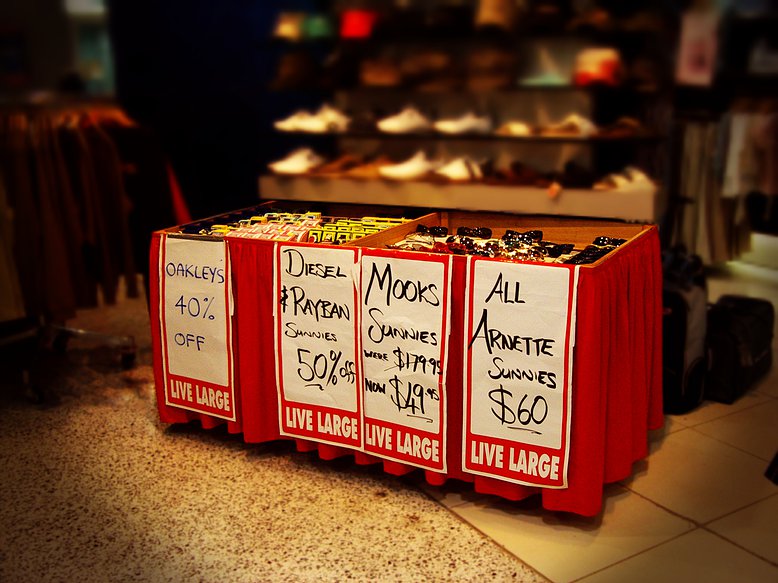 OAKLEY'S
40%
OFF
LIVE LARGE
DIESEL
& RAYBAN
SUNNIES
50% off
LIVE LARGE
MOOKS
SUNNIES
WERE $179.95
NOW $49.95
LIVE LARGE
ALL
ARNETTE
SUNNIES
$60
LIVE LARGE